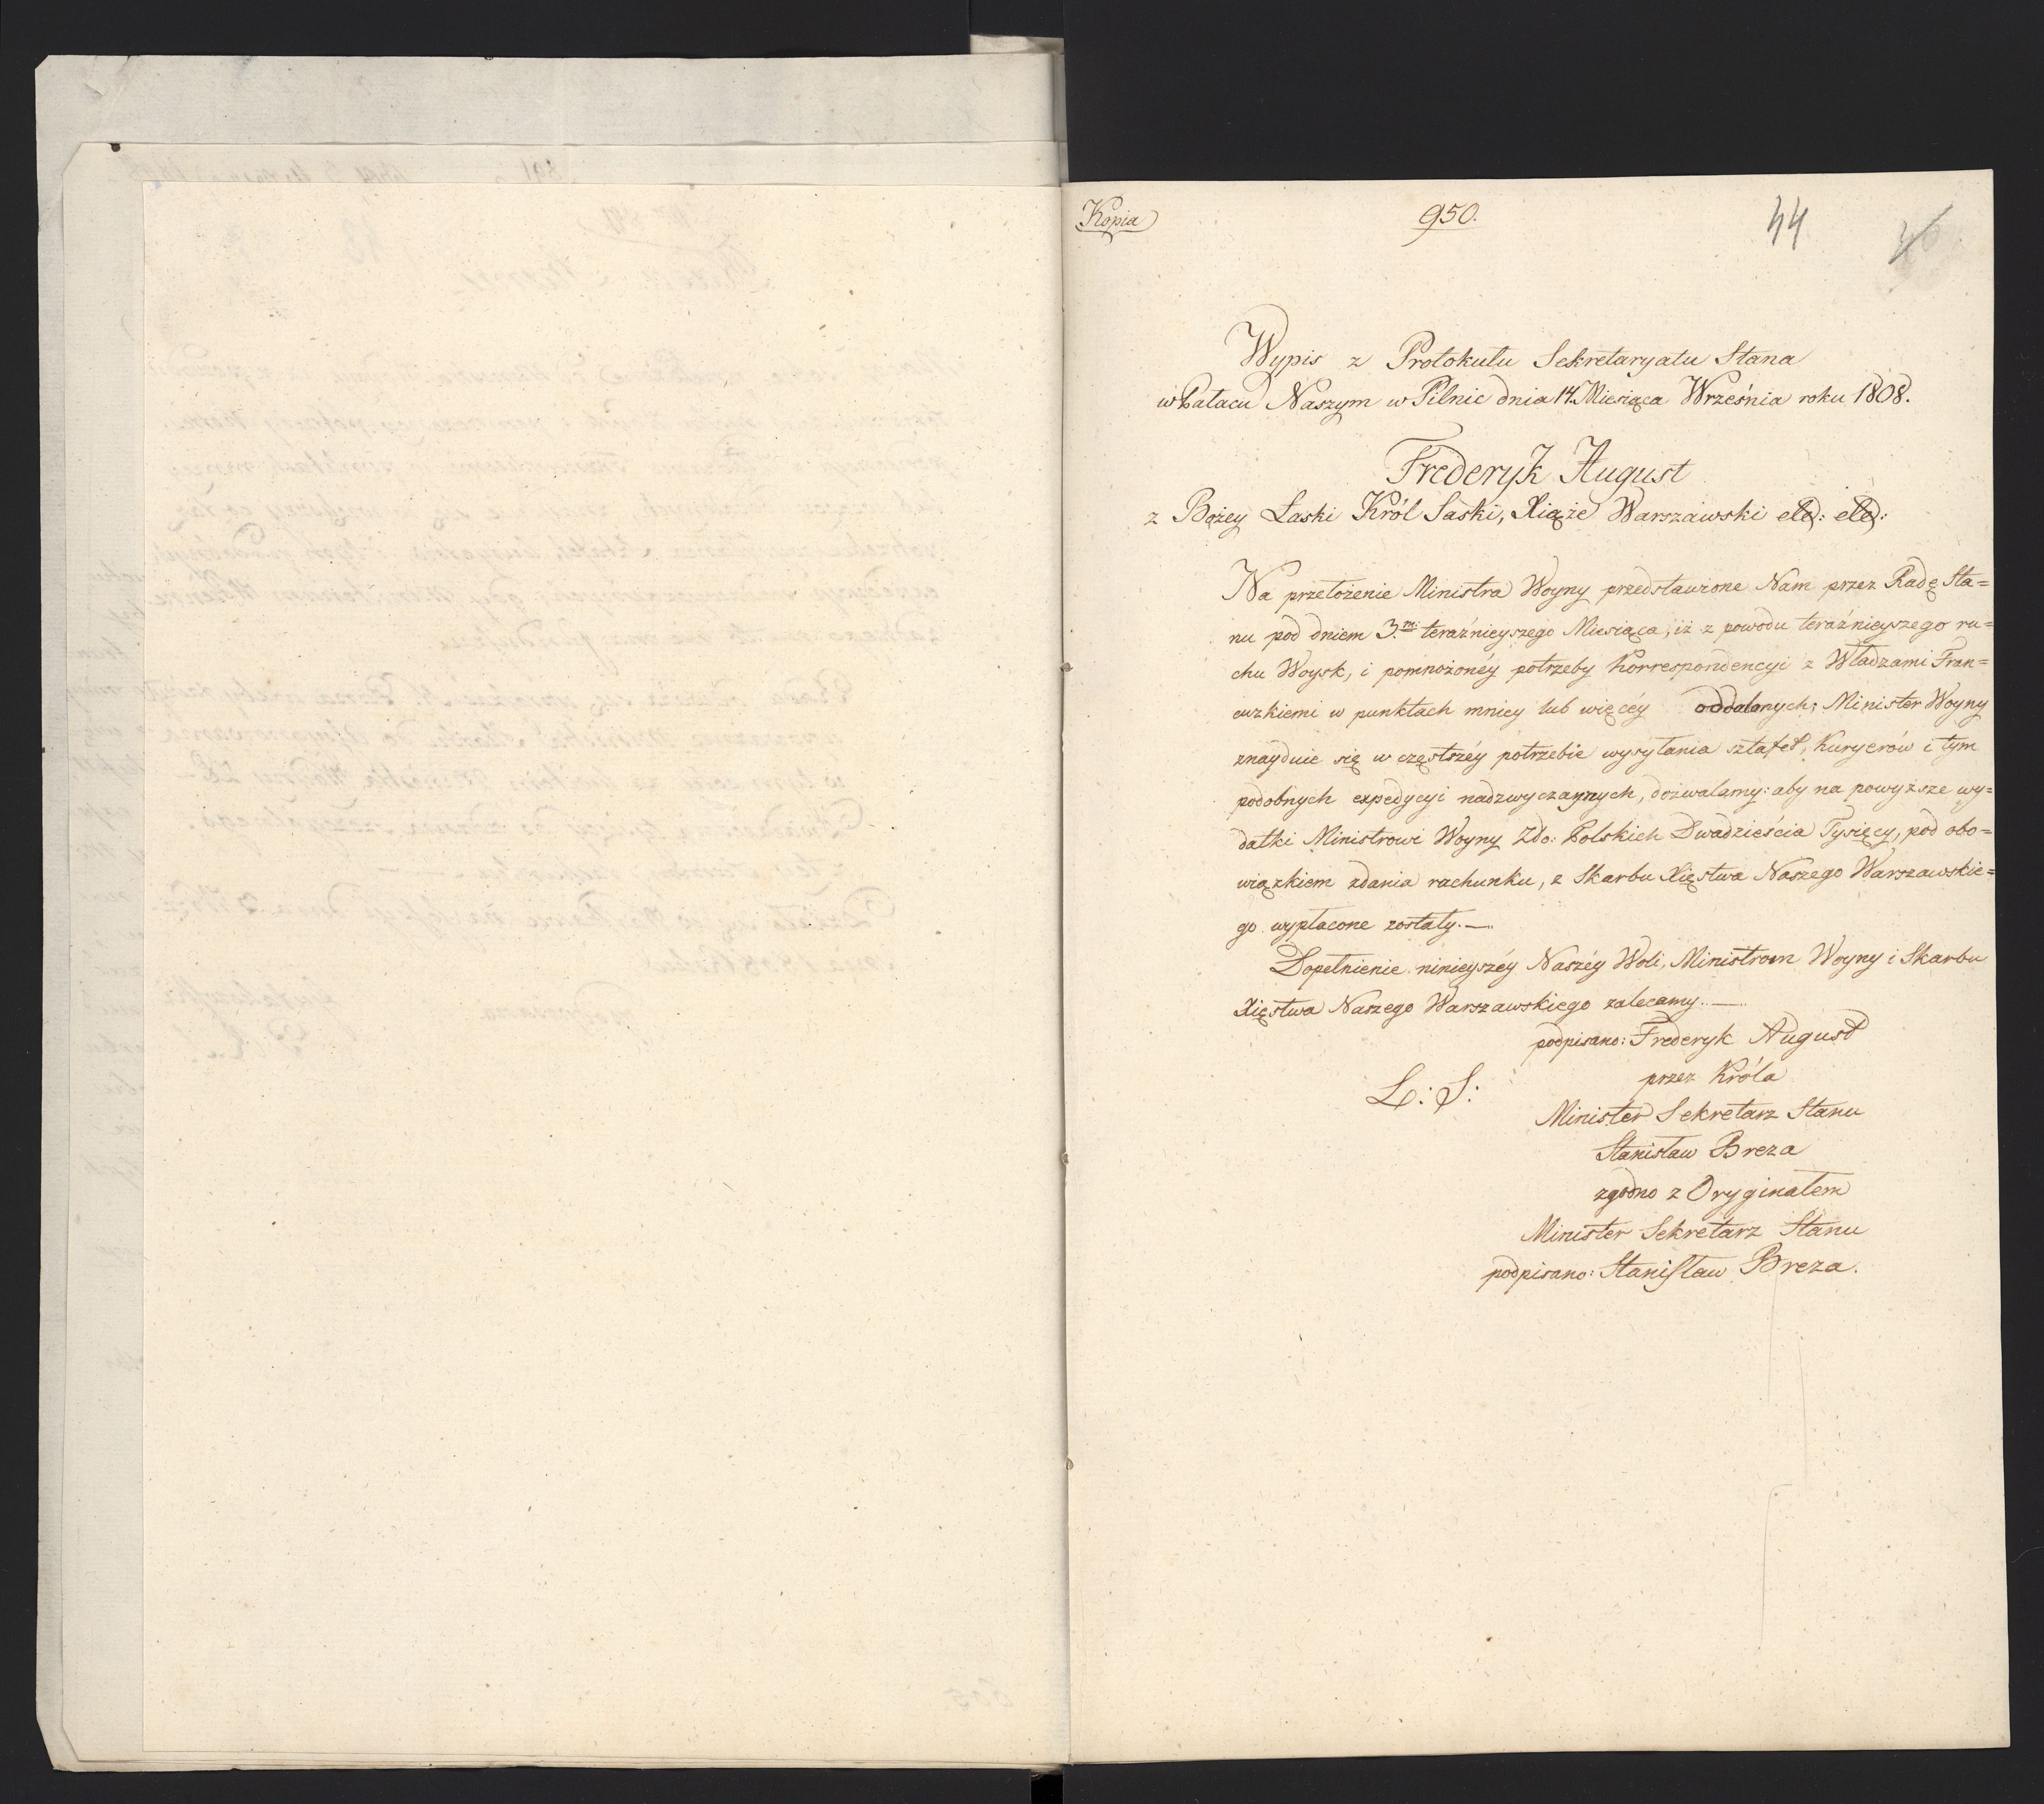 Kopia
950.
44
Wypis z Protokułu Sekretaryatu Stana
w Pałacu Naszym w Pilnic dnia 14. Miesiąca Września roku 1808.
Frederyk August
z Bożey Łaski Król Saski, Xiąże Warszawski etc: etc:
Na przełożenie Ministra Woyny przedstawione Nam przez Radę Sta=
nu pod dniem 3.m teraźnieyszego Miesiąca, iż z powodu teraźnieyszego ru=
chu Woysk, i pomnożonéy potrzeby Korrespondencyi z Władzami Fran=
cuzkiemi w punktach mniey lub więcéy oddalonych; Minister Woyny
znayduie się w częstszéy potrzebie wysyłania sztafet, Kuryerów i tym
podobnych expedycyi nadzwyczaynych, dozwalamy: aby na powyższe wy=
datki Ministrowi Woyny Zło: Polskich Dwadzieścia Tysięcy, pod obo=
wiązkiem zdania rachunku, z Skarbu Xięstwa Naszego Warszawskie=
go wypłacone zostały.—
Dopełnienie ninieyszéy Naszéy Woli, Ministrom Woyny i Skarbu
Xięstwa Naszego Warszawskiego zalecamy.—
podpisano: Frederyk August
przez Króla
L: S:
Minister Sekretarz Stanu
Stanisław Breza
zgodno z Oryginałem
Minister Sekretarz Stanu
podpisano: Stanisław Breza.